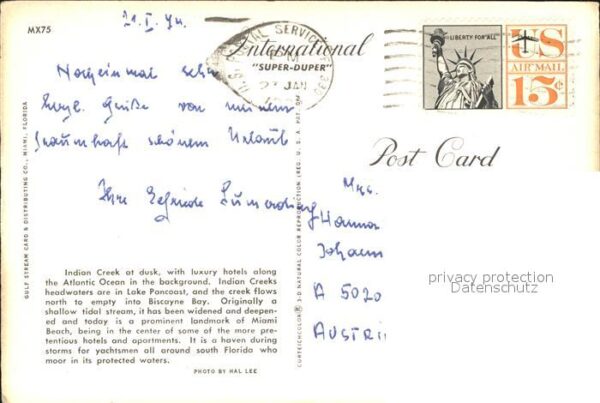 MX75
21. I. 74.
International
"SUPER-DUPER"
U.S. POSTAL SERVICE
PM
JAN
LIBERTY FOR ALL
US
AIR MAIL
15¢
Noch einmal
herzl. Grüße von meinem
traumhaft schönem Urlaub
Ihre Elfriede
Post Card
Hanna
Johann
A 5020
AUSTRI
privacy protection
Datenschutz
GULF STREAM CARD & DISTRIBUTING CO., MIAMI, FLORIDA
CURTEICHCOLOR® 3-D NATURAL COLOR REPRODUCTION (REG. U. S. A. PAT. OFF.
Indian Creek at dusk, with luxury hotels along
the Atlantic Ocean in the background. Indian Creeks
headwaters are in Lake Pancoast, and the creek flows
north to empty into Biscayne Bay. Originally a
shallow tidal stream, it has been widened and deepen-
ed and today is a prominent landmark of Miami
Beach, being in the center of some of the more pre-
tentious hotels and apartments. It is a haven during
storms for yachtsmen all around south Florida who
moor in its protected waters.
PHOTO BY HAL LEE